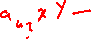 a₄₂xy—